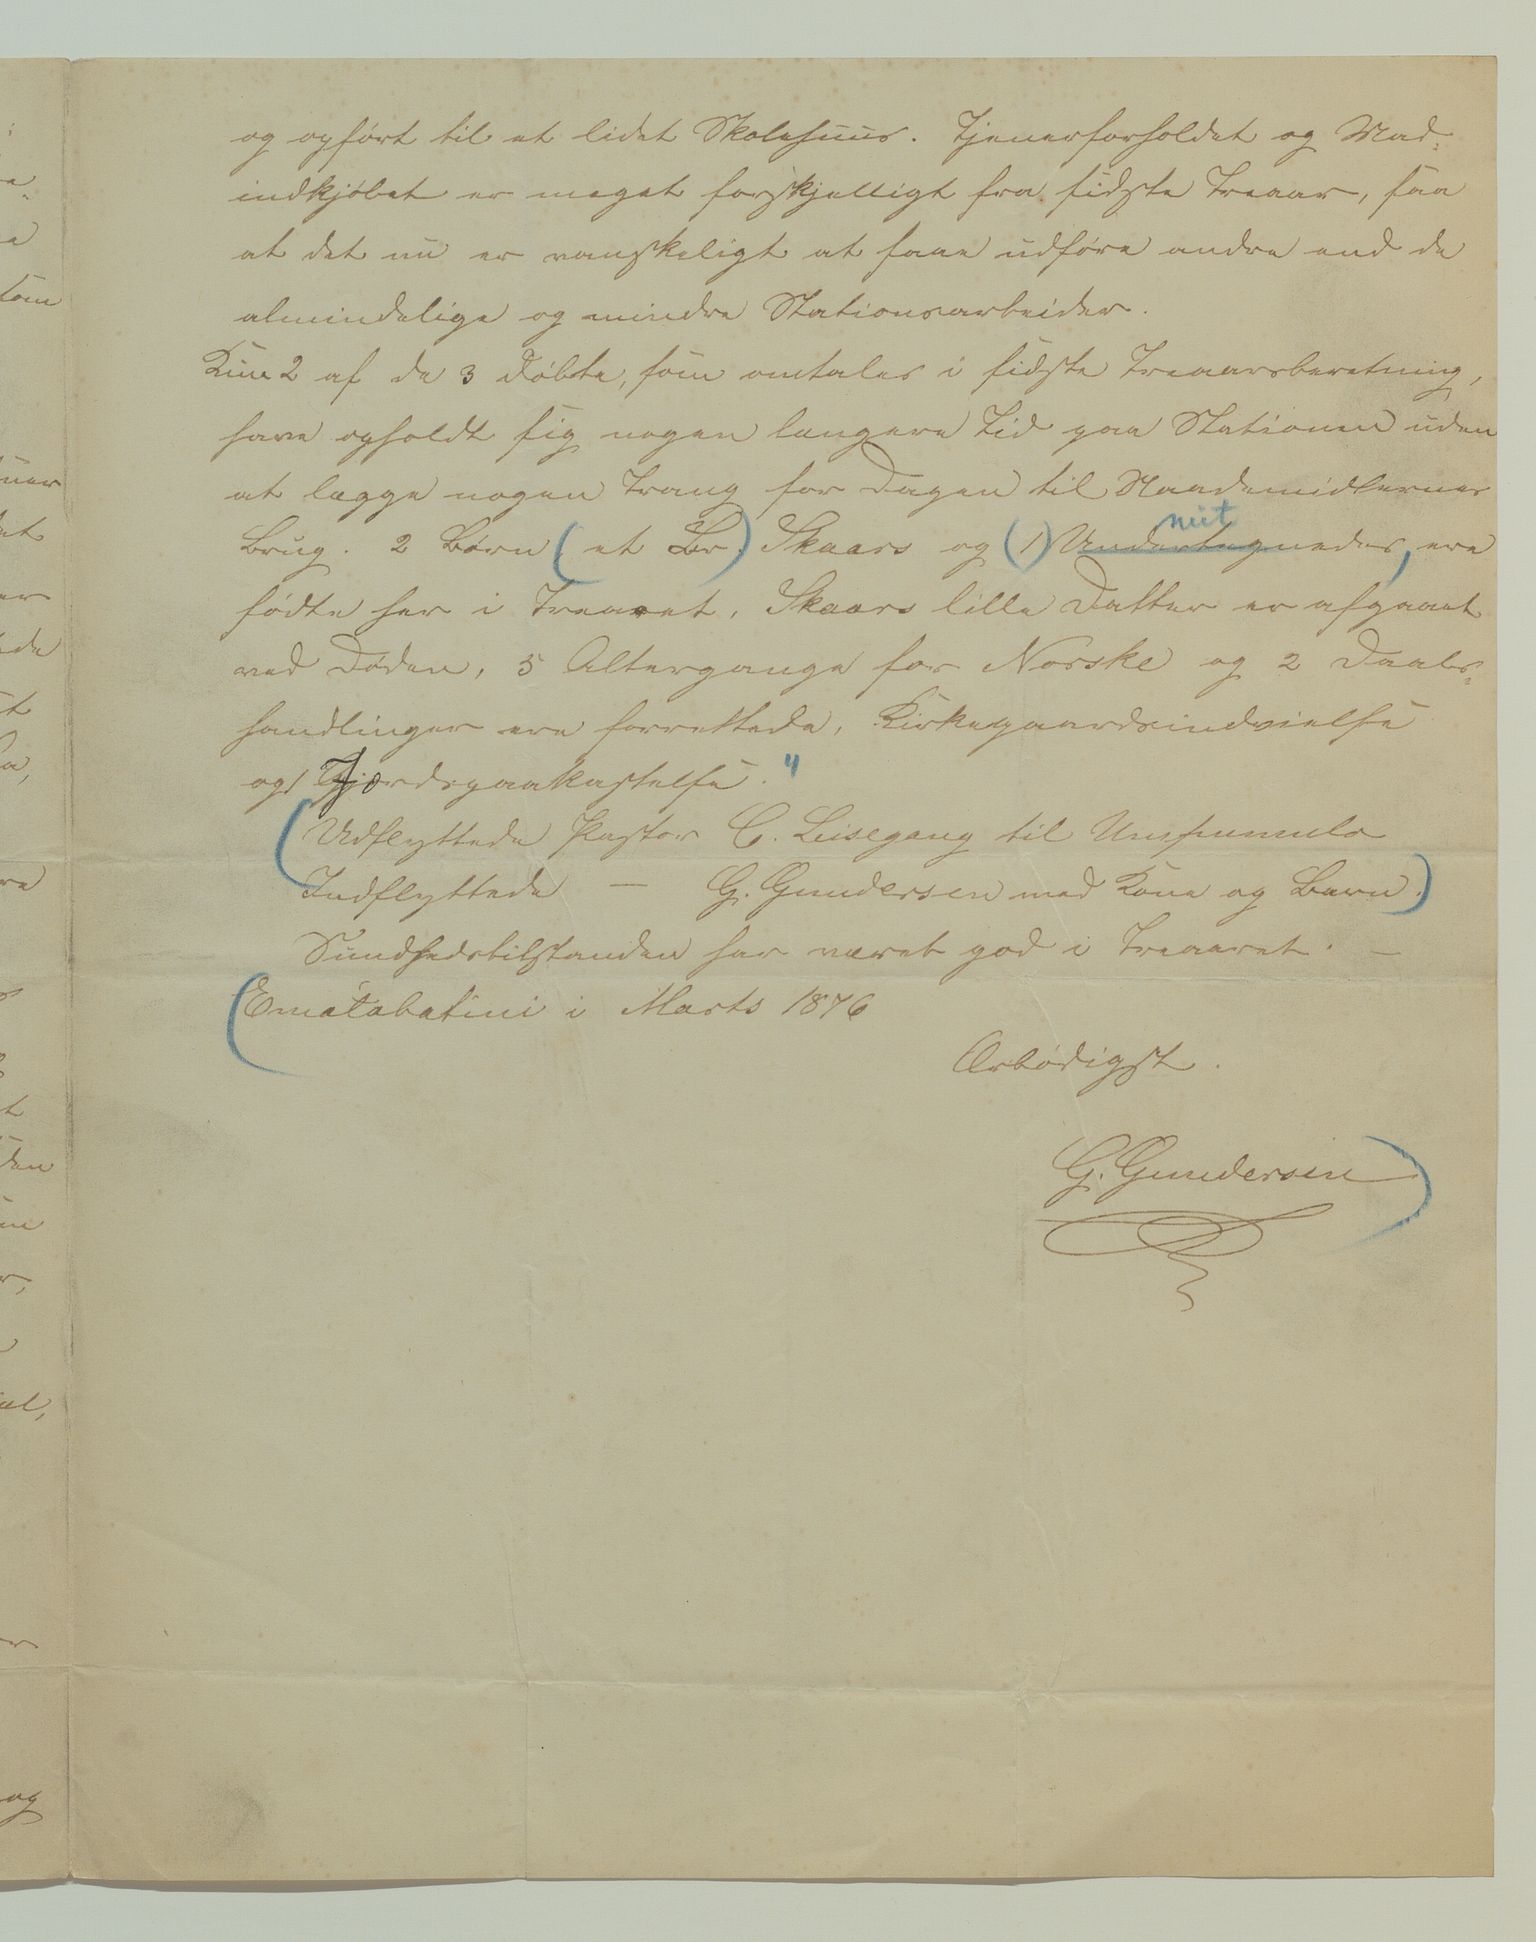 og opført til et lidet Skolehuus. Tjenerforholdet og Mad-
indkjøbet er meget forskjelligt fra sidste Treaar, saa
at det nu er vanskeligt at faae udføre andre end de
almindelige og mindre Stationsarbeider.
Kun 2 af de 3 Døbte, som omtales i sidste Treaarsberetning,
have opholdt sig nogen længere Tid paa Stationen uden
at lægge nogen Trang for Dagen til Naademidlernes
mit
Brug. 2 Børn (et Br.) Skaars og (1) Undertegnedes, ere
fødte her i Treaaret. Skaars lille Datter er afgaaet
ved Døden, 5 Altergange for Norske og 2 Daabs-
handlinger ere forrettede, Kirkegaardsindvielse
og Jordspaakastelse."
(Udflyttede Pastor C. Leisegang til Umpumulo
Indflyttede — G. Gundersen med Kone og Barn.)
Sundhedstilstanden har været god i Treaaret. —
(Ematabatini i Marts 1876
Ærbødigst.
G. Gundersen)
tom
et
er
t
re
t
den
og